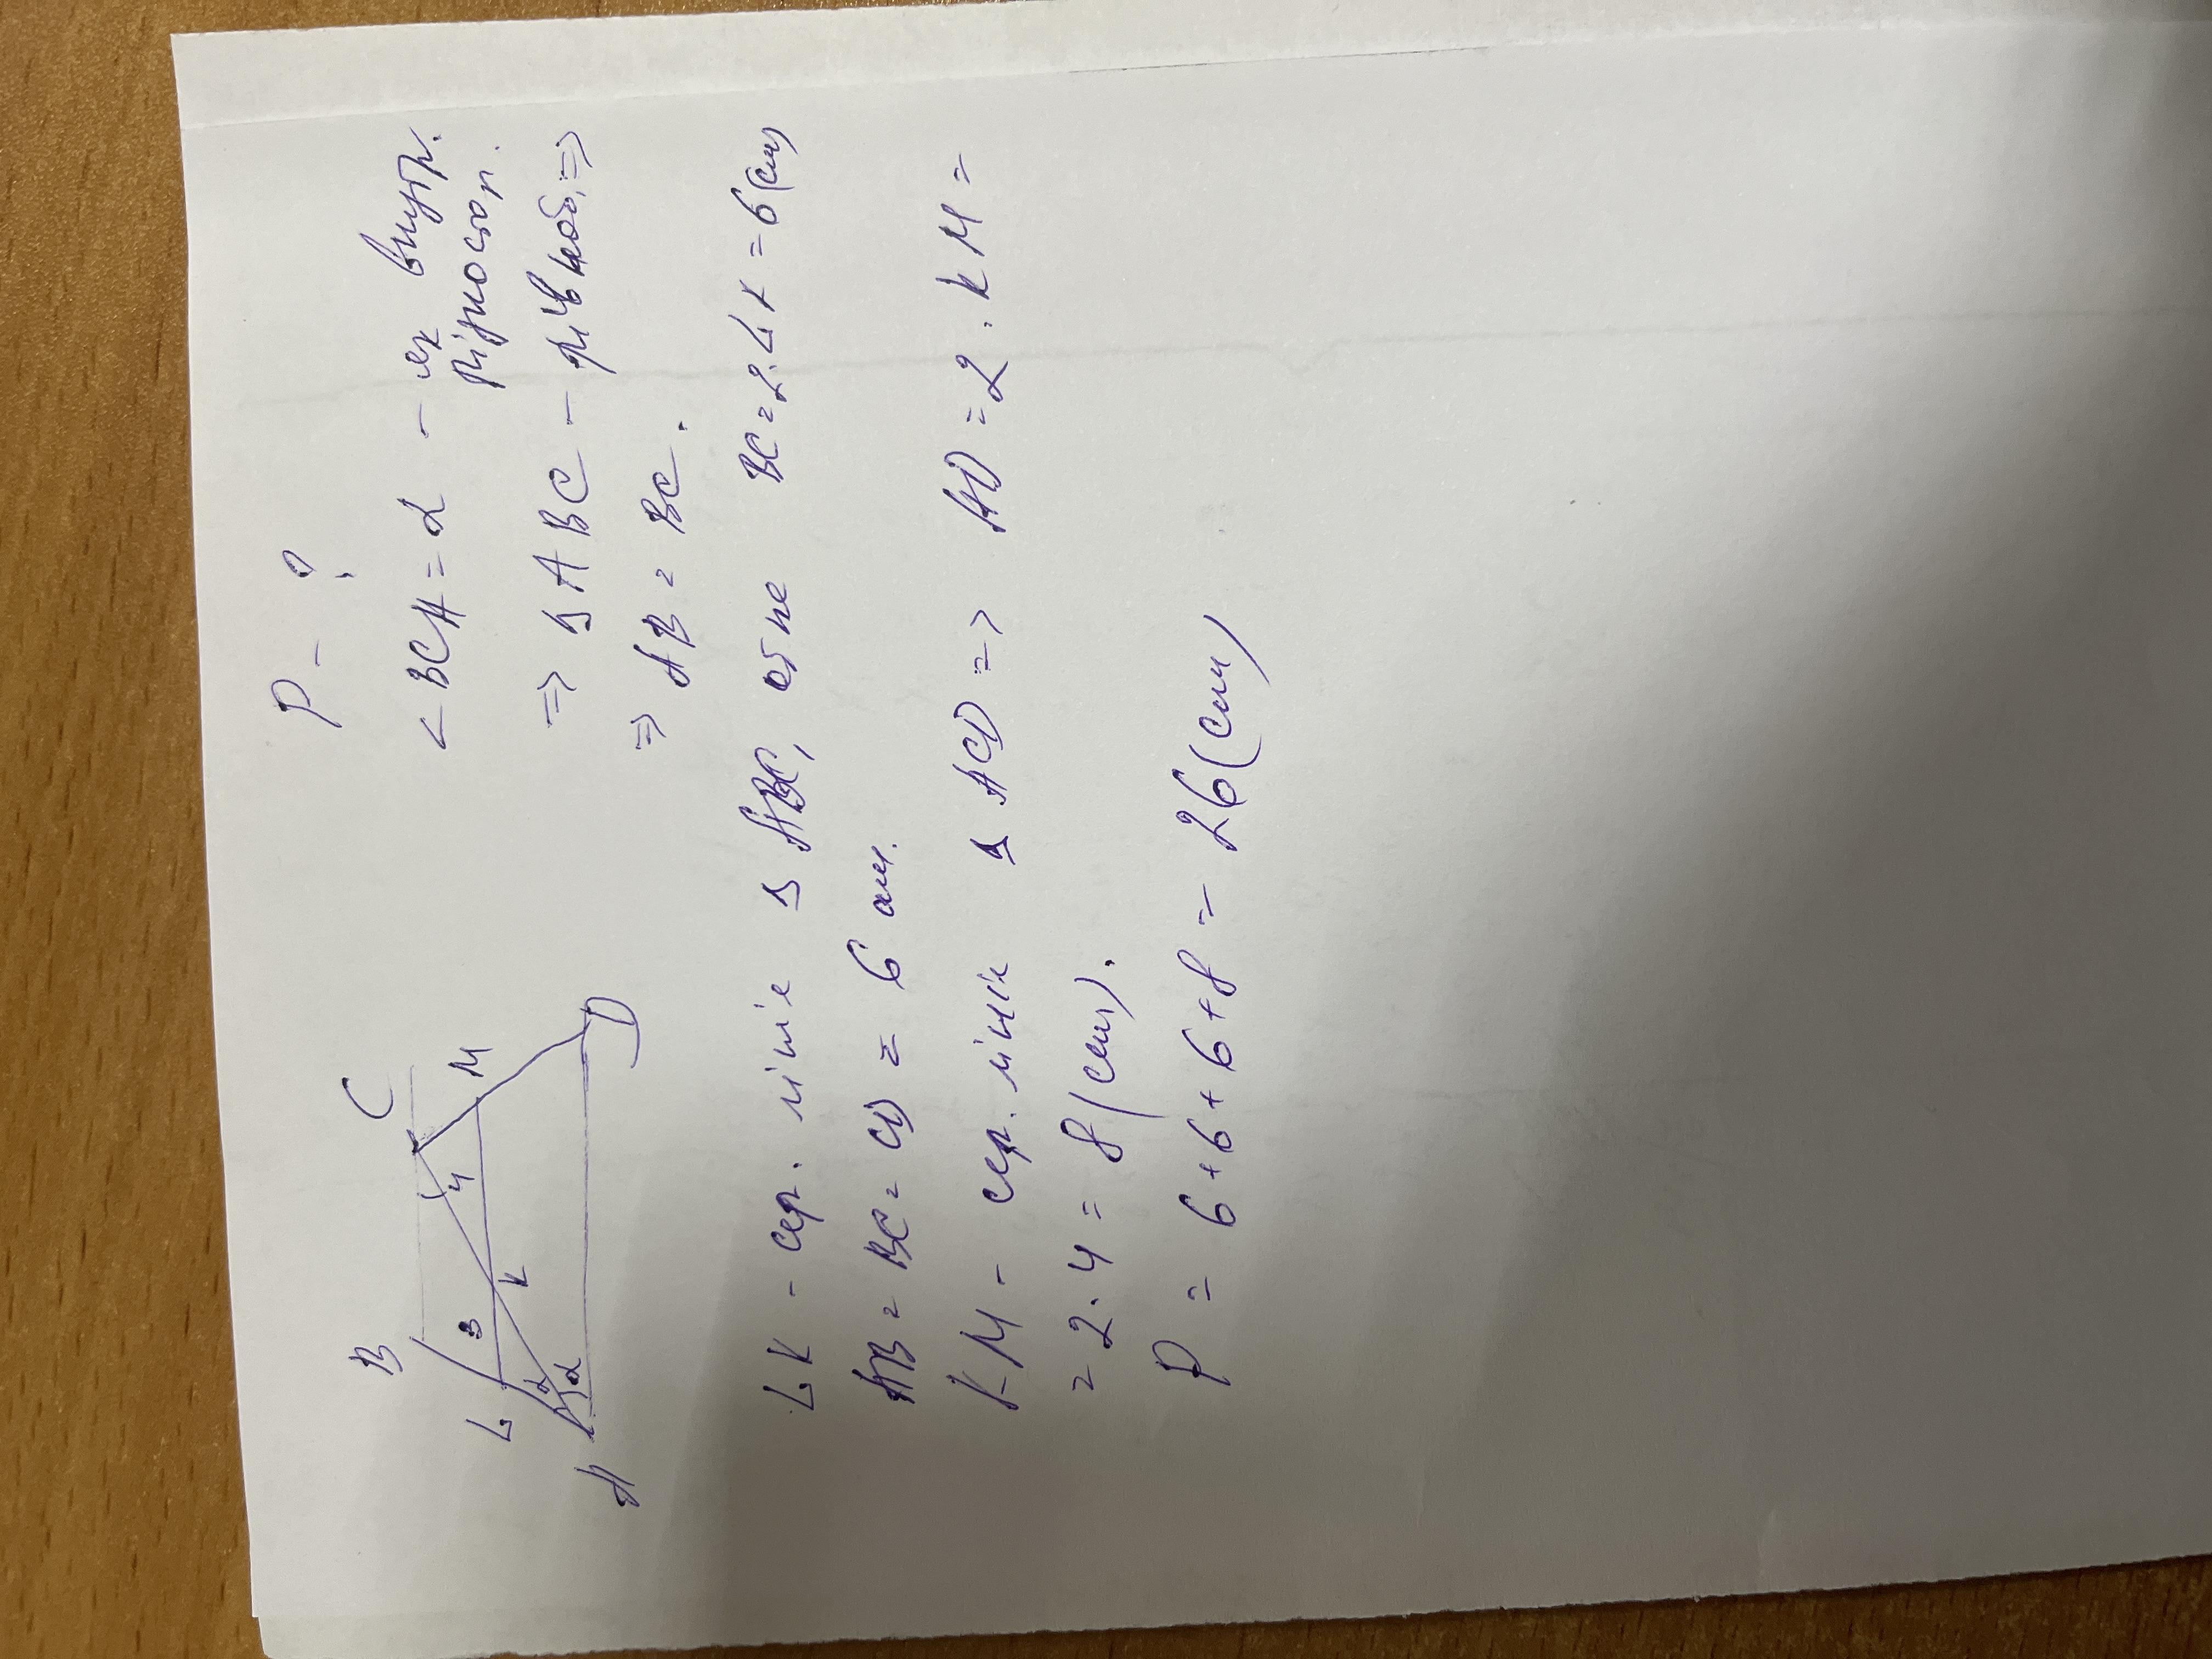 P - ?
B C
L 3 4 M
K
α
α
A D
< BCA = α - як внутр.
різностор.
=> Δ ABC - рівноб. =>
=> AB = BC.
LK - сер. лінія Δ ABC, отже BC = 2·LK = 6(см)
AB = BC = CD = 6 см.
KM - сер. лінія Δ ACD => AD = 2·KM =
= 2·4 = 8(см).
P = 6+6+6+8 = 26(см)